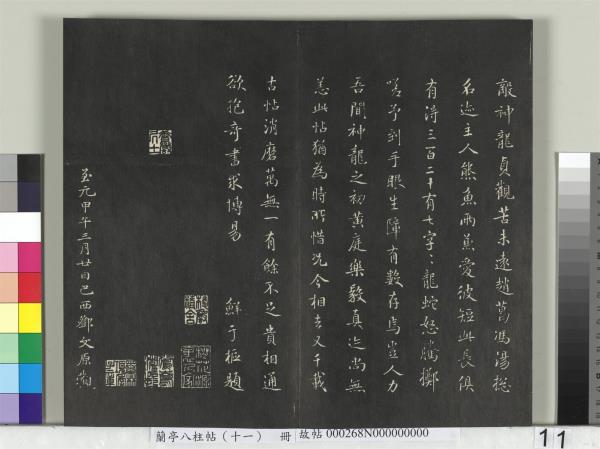 敵神龍貞觀苦未遠趙葛馮湯揔
名迹主人熊魚兩兼愛彼短此長俱
有得三百二十有七字字龍蛇怒騰擲
嗟予到手眼生障有數存焉豈人力
吾聞神龍之初黃庭樂毅真迹尚無
恙此帖猶為時所惜況今相去又千載
古帖消磨萬無一有餘不足貴相通
欲抱奇書求博易 鮮于樞題
至元甲午三月廿日巴西鄧文原觀
蘭亭八柱帖(十一) 冊 故帖 000268N000000000
11